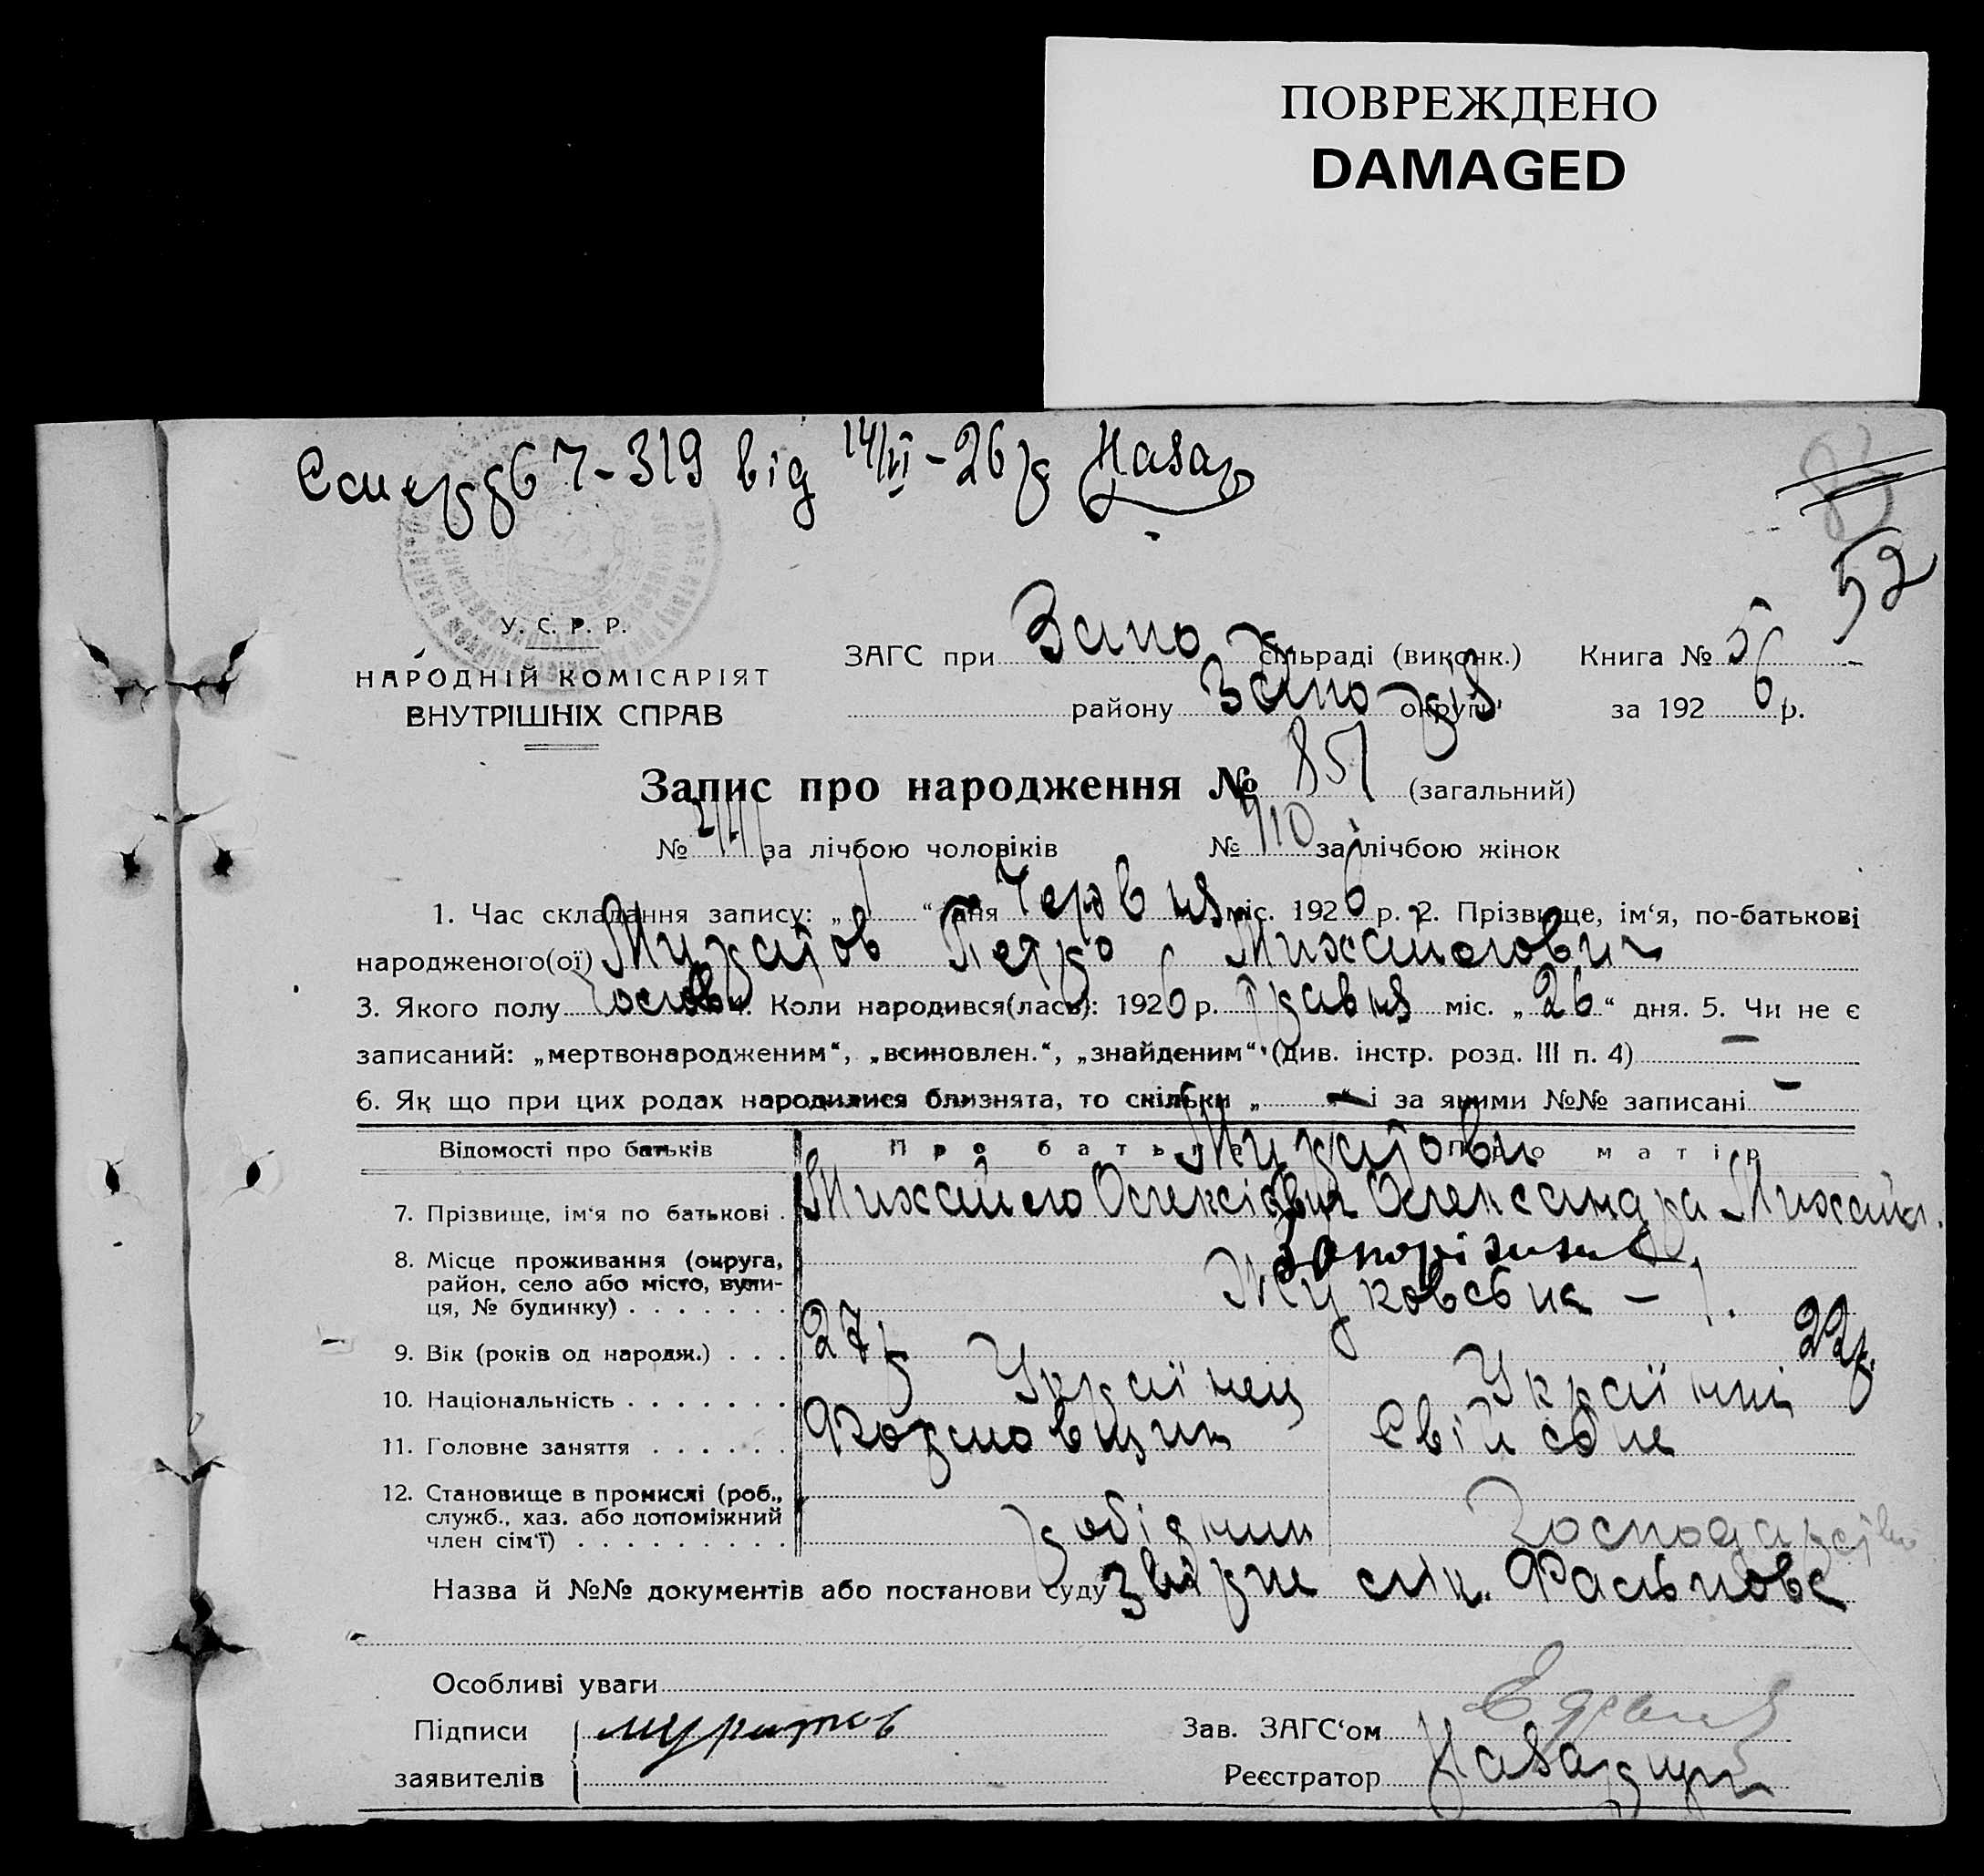 ПОВРЕЖДЕНО
DAMAGED
7-319 від 14/VI-26 р Назар
52
У. С. Р. Р.
НАРОДНІЙ КОМІСАРІЯТ
ВНУТРІШНІХ СПРАВ
ЗАГС при Запо сільраді (виконк.) Книга № 5
району Запо округи за 1926 р.
Запис про народження № 851 (загальний)
№ 441 за лічбою чоловіків № 410 за лічбою жінок
1. Час складання запису: „1“ дня Червня міс. 1926 р. 2. Прізвище, ім‘я, по-батькові
народженого(ої) Муратов Петро Михайлович
3. Якого полу 4. Коли народився(лась): 1926 р. Травня міс. „26“ дня. 5. Чи не є
записаний: „мертвонародженим“, „всиновлен.“, „знайденим“ (див. інстр. розд. III п. 4) —
6. Як що при цих родах народилися близнята, то скільки „—“ і за якими №№ записані —
Відомості про батьків Про батька Про матір
Муратови
7. Прізвище, ім‘я по батькові . Михайло Олексієвич Олександра Михайл.
8. Місце проживання (округа,
район, село або місто, вули-
ця, № будинку) . . . . . . .
Запоріжжя
Жуковська – 1.
9. Вік (років од народж.) . . . 27 р 22 р.
10. Національність . . . . . . . Українец Українці
11. Головне заняття . . . . . . Формовщик Свійське
12. Становище в промислі (роб.,
служб., хаз. або допоміжний
член сім‘ї) . . . . . . . . . робітник Господарство
Назва й №№ документів або постанови суду
Особливі уваги
Підписи Муратов Зав. ЗАГС‘ом
заявителів Реєстратор